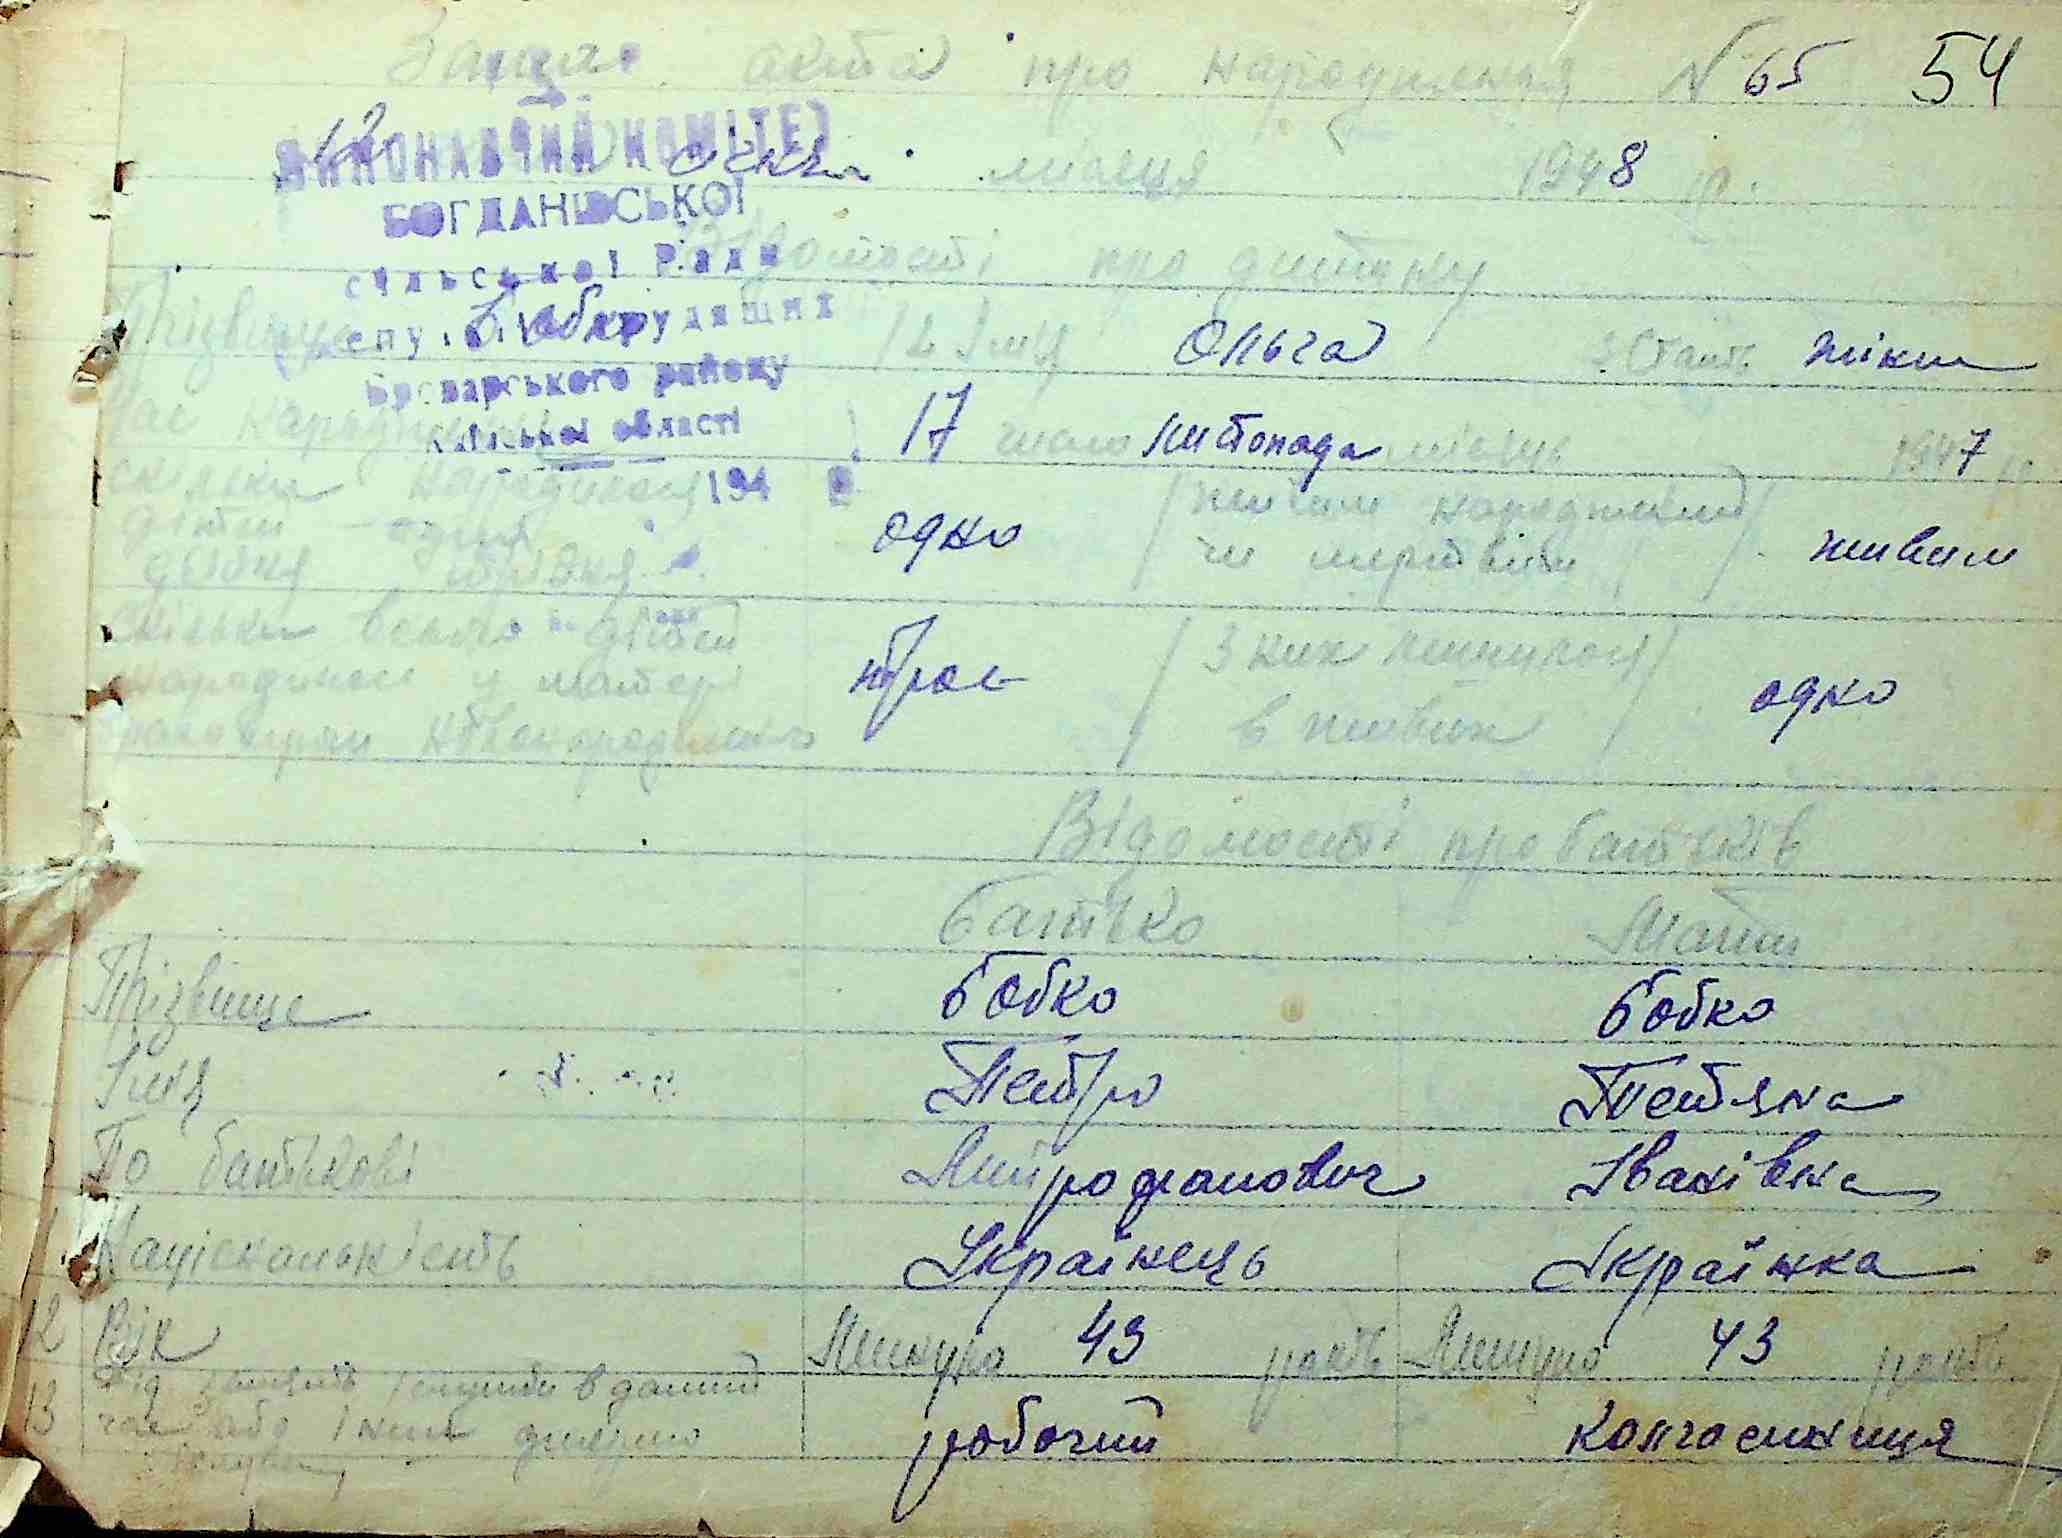 Запис акта про народження N 65 54
12 січня місяця 1948 р.
ВИКОНАВЧИЙ КОМІТЕТ
БОГДАНІВСЬКОЇ
сільської Ради
депутатів трудящих
Броварського району
Київської області
194 р.
Відомості про дитину
Прізвище Бобко 2 Імя Ольга 3. Стать жіноч
Час народження 17 число листопада місяць 1947 р.
Скільки народилося
дітей – одна
двійня трійня
одно
живим народжений
чи мертвим
живим
Скільки всього дітей
народилося у матері
враховуючи новонароджених
троє
З них лишилося
в живих
одно
Відомості про батьків
Батько Мати
Прізвище Бобко Бобко
Імя Петро Тетяна
По батькові Митрофанович Іванівна
Національність Українець Українка
12 Вік Минуло 43 років Минуло 43 років
13 занять в даний
час або джерело
існування
робочий колгоспниця